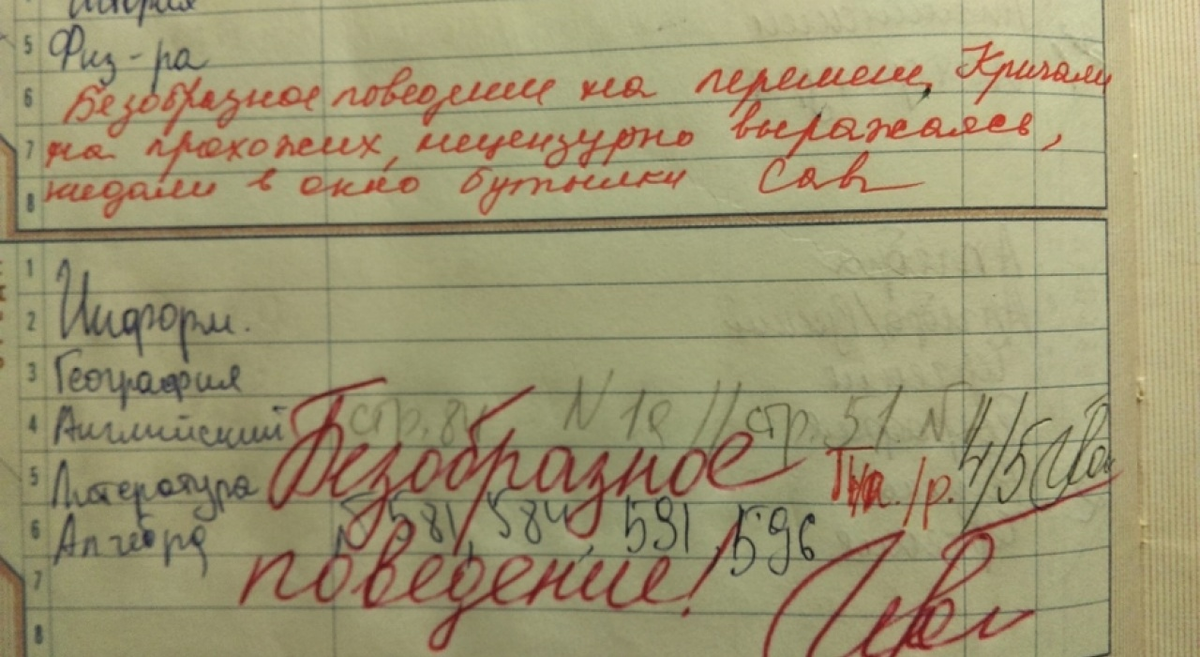 История
5 Физ-ра
6 Безобразное поведение на перемене. Кричали
7 на прохожих, нецензурно выражаясь,
8 кидали в окно бутылки Сав
1
2 Информ.
3 География
4 Английский стр. 84 N 1a // стр. 51. N 4/5
5 Литература Безобразное /р.
6 Алгебра 581, 584, 591, 596
7 поведение!
8